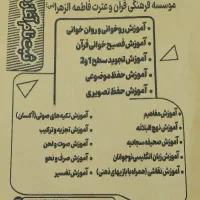 موسسه فرهنگی قرآن و عترت فاطمه الزهرا(س)
آموزش روخوانی و روان خوانی
آموزش فصیح خوانی قرآن
آموزش تجوید سطح 1 و2
آموزش حفظ موضوعی
آموزش حفظ تصویری
آموزش مفاهیم
آموزش نهج البلاغه
آموزش صحیفه سجادیه
آموزش زبان انگلیسی نوجوانان
آموزش نقاشی (همراه با بازیهای ذهنی)
آموزش تکیه های صوتی (آکسان)
آموزش تجزیه و ترکیب
آموزش صوت و لحن
آموزش صرف و نحو
آموزش تفسیر